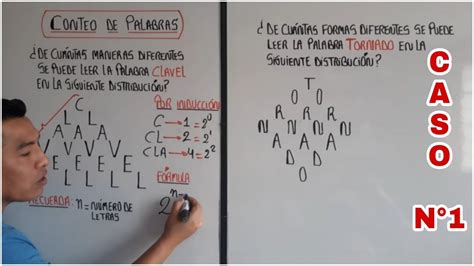 CONTEO DE PALABRAS
¿DE CUÁNTAS MANERAS DIFERENTES
SE PUEDE LEER LA PALABRA CLAVEL
EN LA SIGUIENTE DISTRIBUCIÓN?
C
L L
A A A
V V V
E E E
L L L L
POR INDUCCIÓN
C → 1 = 2⁰
CL → 2 = 2¹
CLA → 4 = 2²
FÓRMULA
2ⁿ⁻
RECUERDA: n = NÚMERO DE
LETRAS
¿DE CUÁNTAS FORMAS DIFERENTES SE PUEDE
LEER LA PALABRA TORNADO EN LA
SIGUIENTE DISTRIBUCIÓN?
T
O O
R R R
N N N N
A A A
D D
O
CASO
N°1